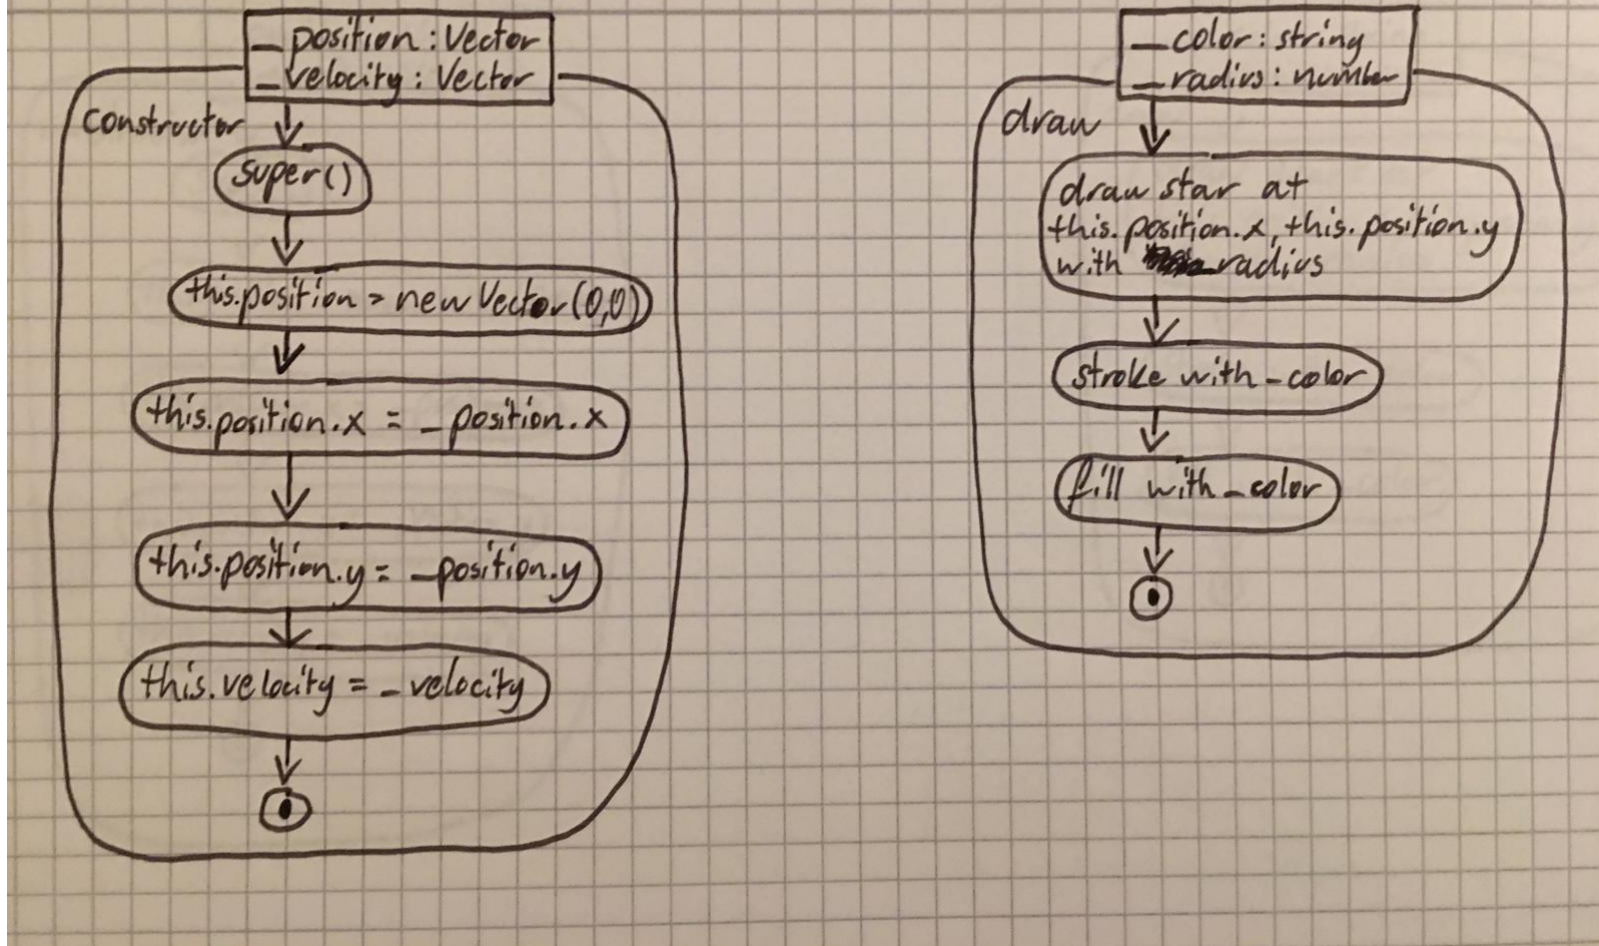 _position : Vector
_velocity : Vector
constructor
super()
this.position = new Vector(0,0)
this.position.x = _position.x
this.position.y = _position.y
this.velocity = _velocity
_color : string
_radius : number
draw
draw star at
this.position.x, this.position.y
with _radius
stroke with _color
fill with _color